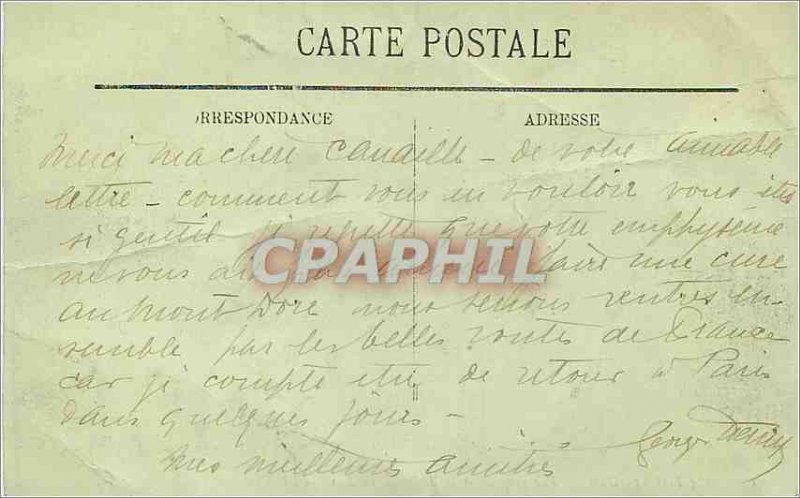 CARTE POSTALE
ORRESPONDANCE
ADRESSE
Merci ma chère Canaille - de votre aimable
lettre - comment vous en vouloir vous êtes
si gentil je regrette que votre emphysème
ne vous ait pas faire une cure
au Mont Dore nous serions rentrés en-
semble par les belles routes de France
car je compte être de retour à Paris
dans quelques jours -
Georges
Mes meilleures amitiés
CPAPHIL